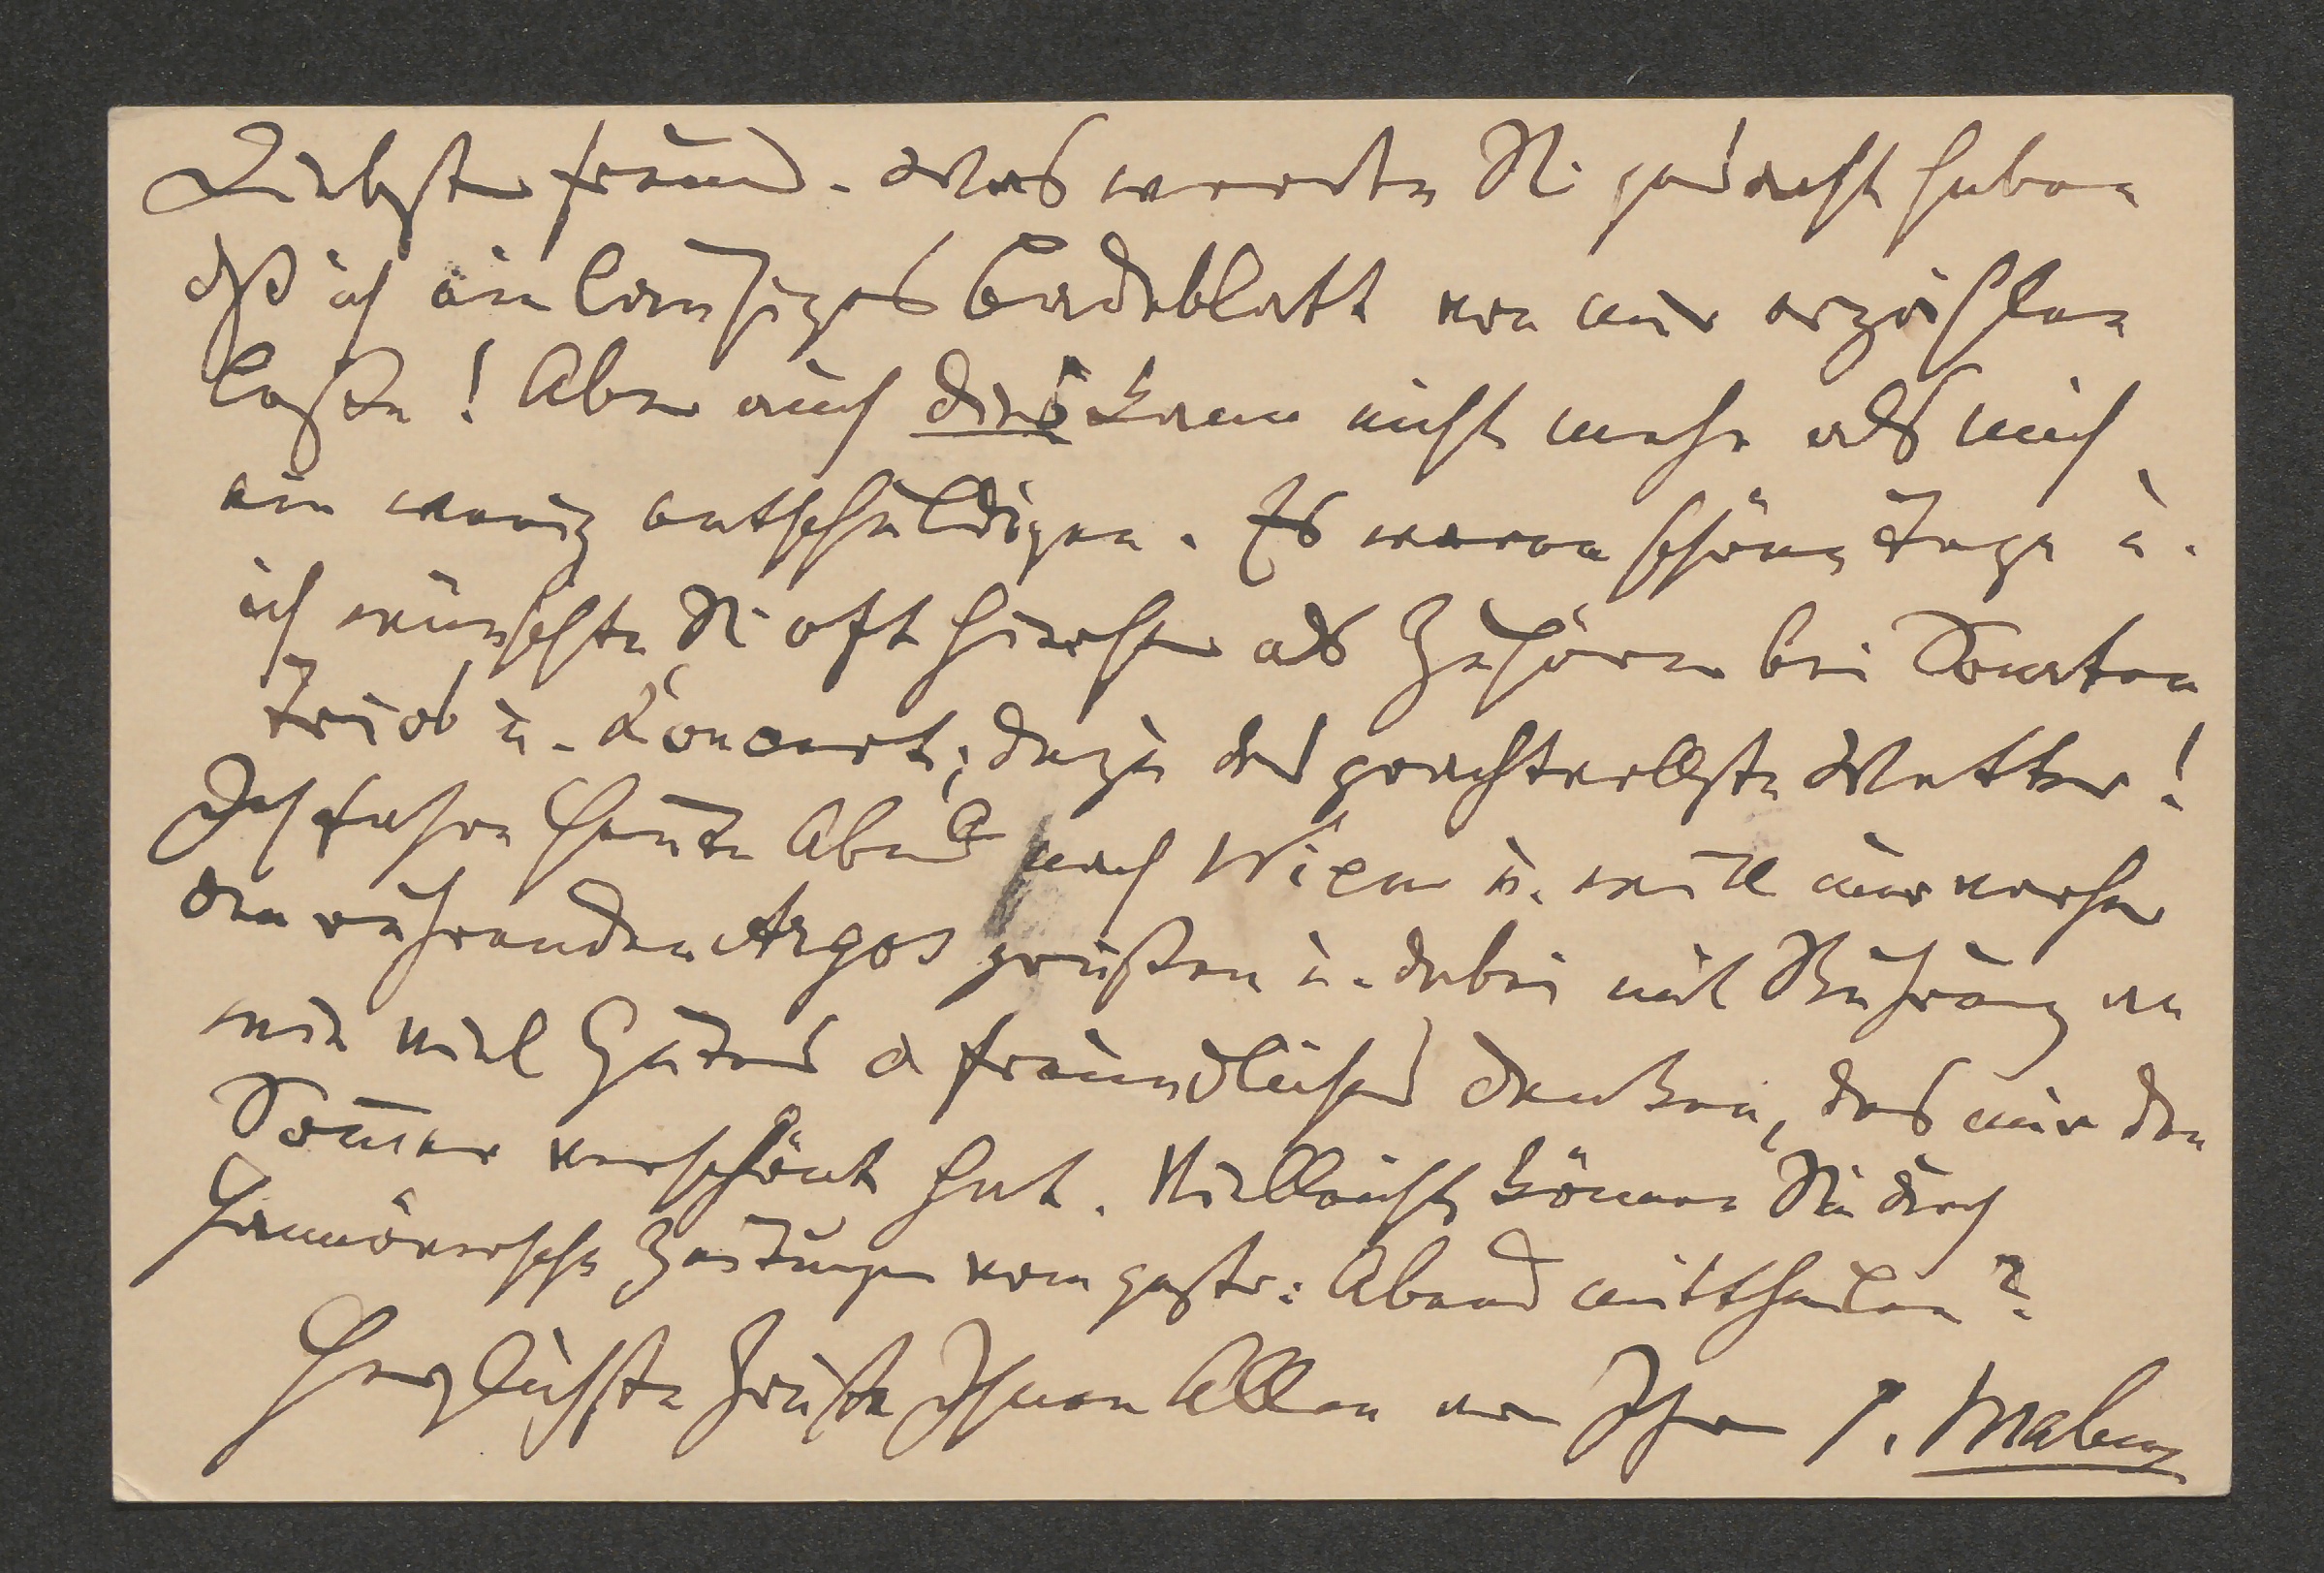 Liebster Freund. Was werden Sie gedacht haben
dß ich ein lausiges Badeblatt von mir erzählen
laße! Aber auch dies kann nicht mehr als mich
ein wenig entschuldigen. Es waren schöne Tage u.
ich wünschte Sie oft hierher als Zuhörer bei Sonaten
Trios u. Concert; dazu das prachtvollste Wetter!
Ich fahre heute Abend nach Wien u. will nur vorher
den rührenden Argos grüßen u. dabei mit Rührung an
wie viel Gutes u freundliches denken, das mir den
Som̅er verschönt hat. Vielleicht können Sie durch
Hannöversche Zeitungen vom gestr: Abend mittheilen?
Herzlichste Grüße Ihnen Allen von Ihrem J.